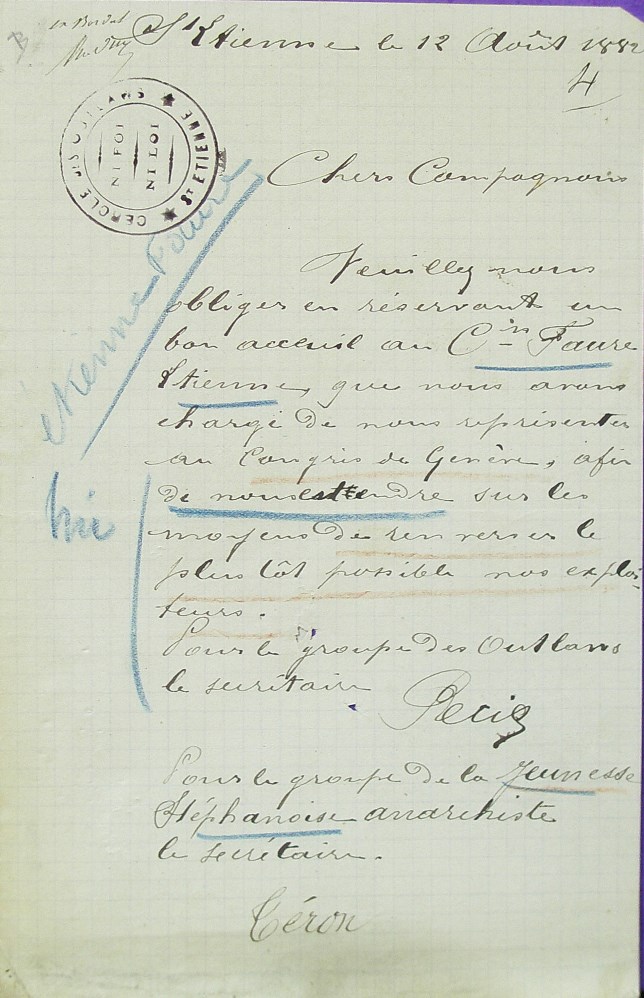 St Etienne le 12 Août 1882
4
CERCLE DES OUTLAWS ★ St ETIENNE ★
NI FOI
NI LOI
Chers Compagnons
Etienne Faure
Veuillez nous
obliger en réservant un
bon acceuil au Cin Faure
Etienne, que nous avons
chargé de nous représenter
au Congrès de Genève, afin
de nous entendre sur les
moyens de renverser le
plus tôt possible nos exploi-
teurs.
Pour le groupe des Outlaws
le secrétaire
Pour le groupe de la Jeunesse
Stéphanoise anarchiste
le secrétaire.
Céron